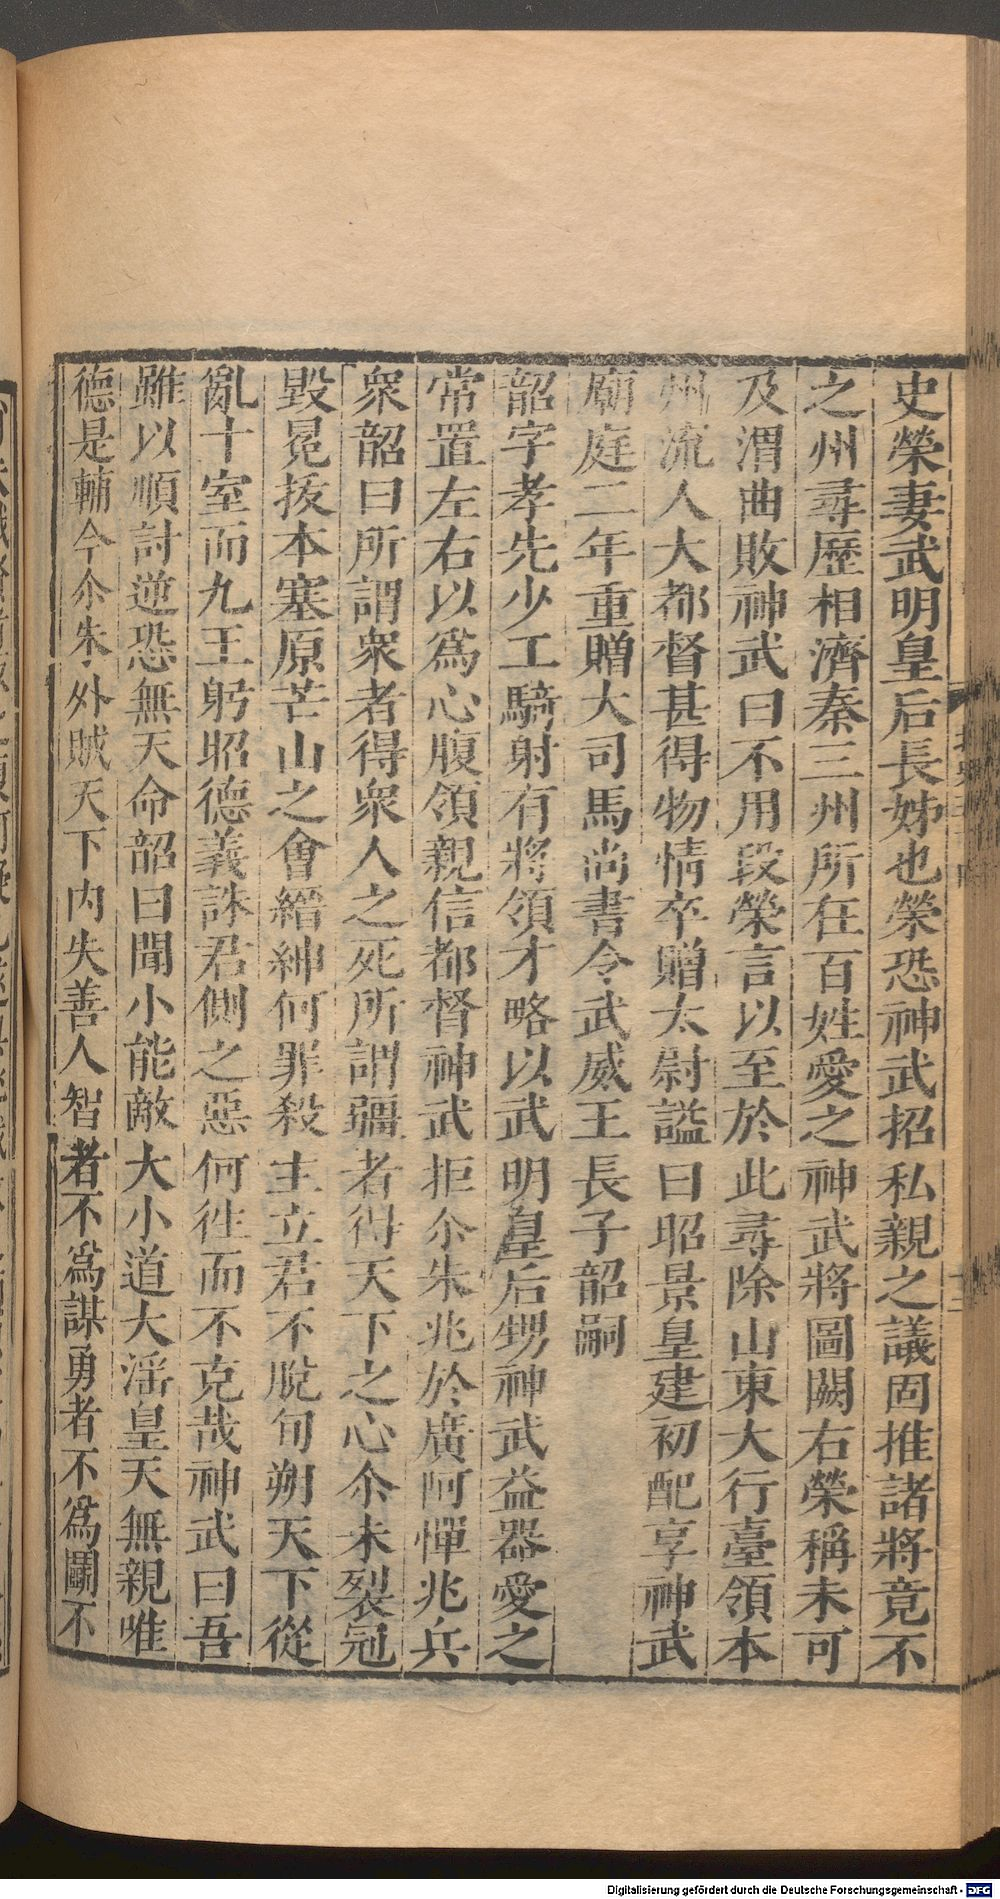 史榮妻武明皇后長姊也榮恐神武招私親之議固推諸將竟不
之州尋歷相濟秦三州所在百姓愛之神武將圖關右榮稱未可
及渭曲敗神武曰不用段榮言以至於此尋除山東大行臺領本
州流人大都督甚得物情卒贈太尉諡曰昭景皇建初配享神武
廟庭二年重贈大司馬尚書令武威王長子韶嗣
韶字孝先少工騎射有將領才略以武明皇后甥神武益器愛之
常置左右以爲心腹領親信都督神武拒尒朱兆於廣阿憚兆兵
衆韶曰所謂衆者得衆人之死所謂彊者得天下之心尒朱裂冠
毀冕拔本塞原芒山之會縉紳何罪殺主立君不脫旬朔天下從
亂十室而九王躬昭德義誅君側之惡何徃而不克哉神武曰吾
雖以順討逆恐無天命韶曰聞小能敵大小道大淫皇天無親唯
德是輔今尒朱外賊天下內失善人智者不爲謀勇者不爲鬭不
Digitalisierung gefördert durch die Deutsche Forschungsgemeinschaft - DFG